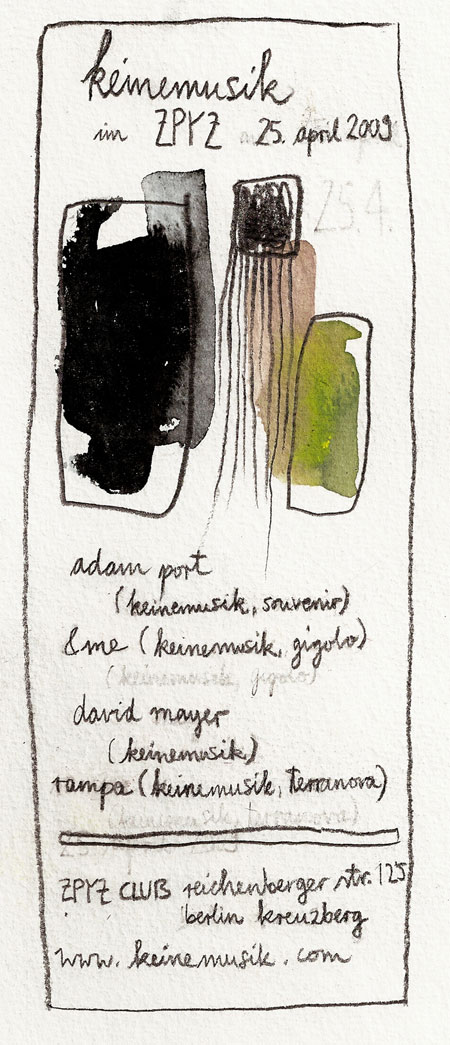 keinemusik
im ZPYZ 25. april 2009
25.4.
adam port
(keinemusik, souvenir)
&me (keinemusik, gigolo)
(keinemusik, gigolo)
david mayer
(keinemusik)
rampa (keinemusik, terranova)
(keinemusik, terranova)
ZPYZ CLUB reichenberger str. 125
berlin kreuzberg
www.keinemusik.com